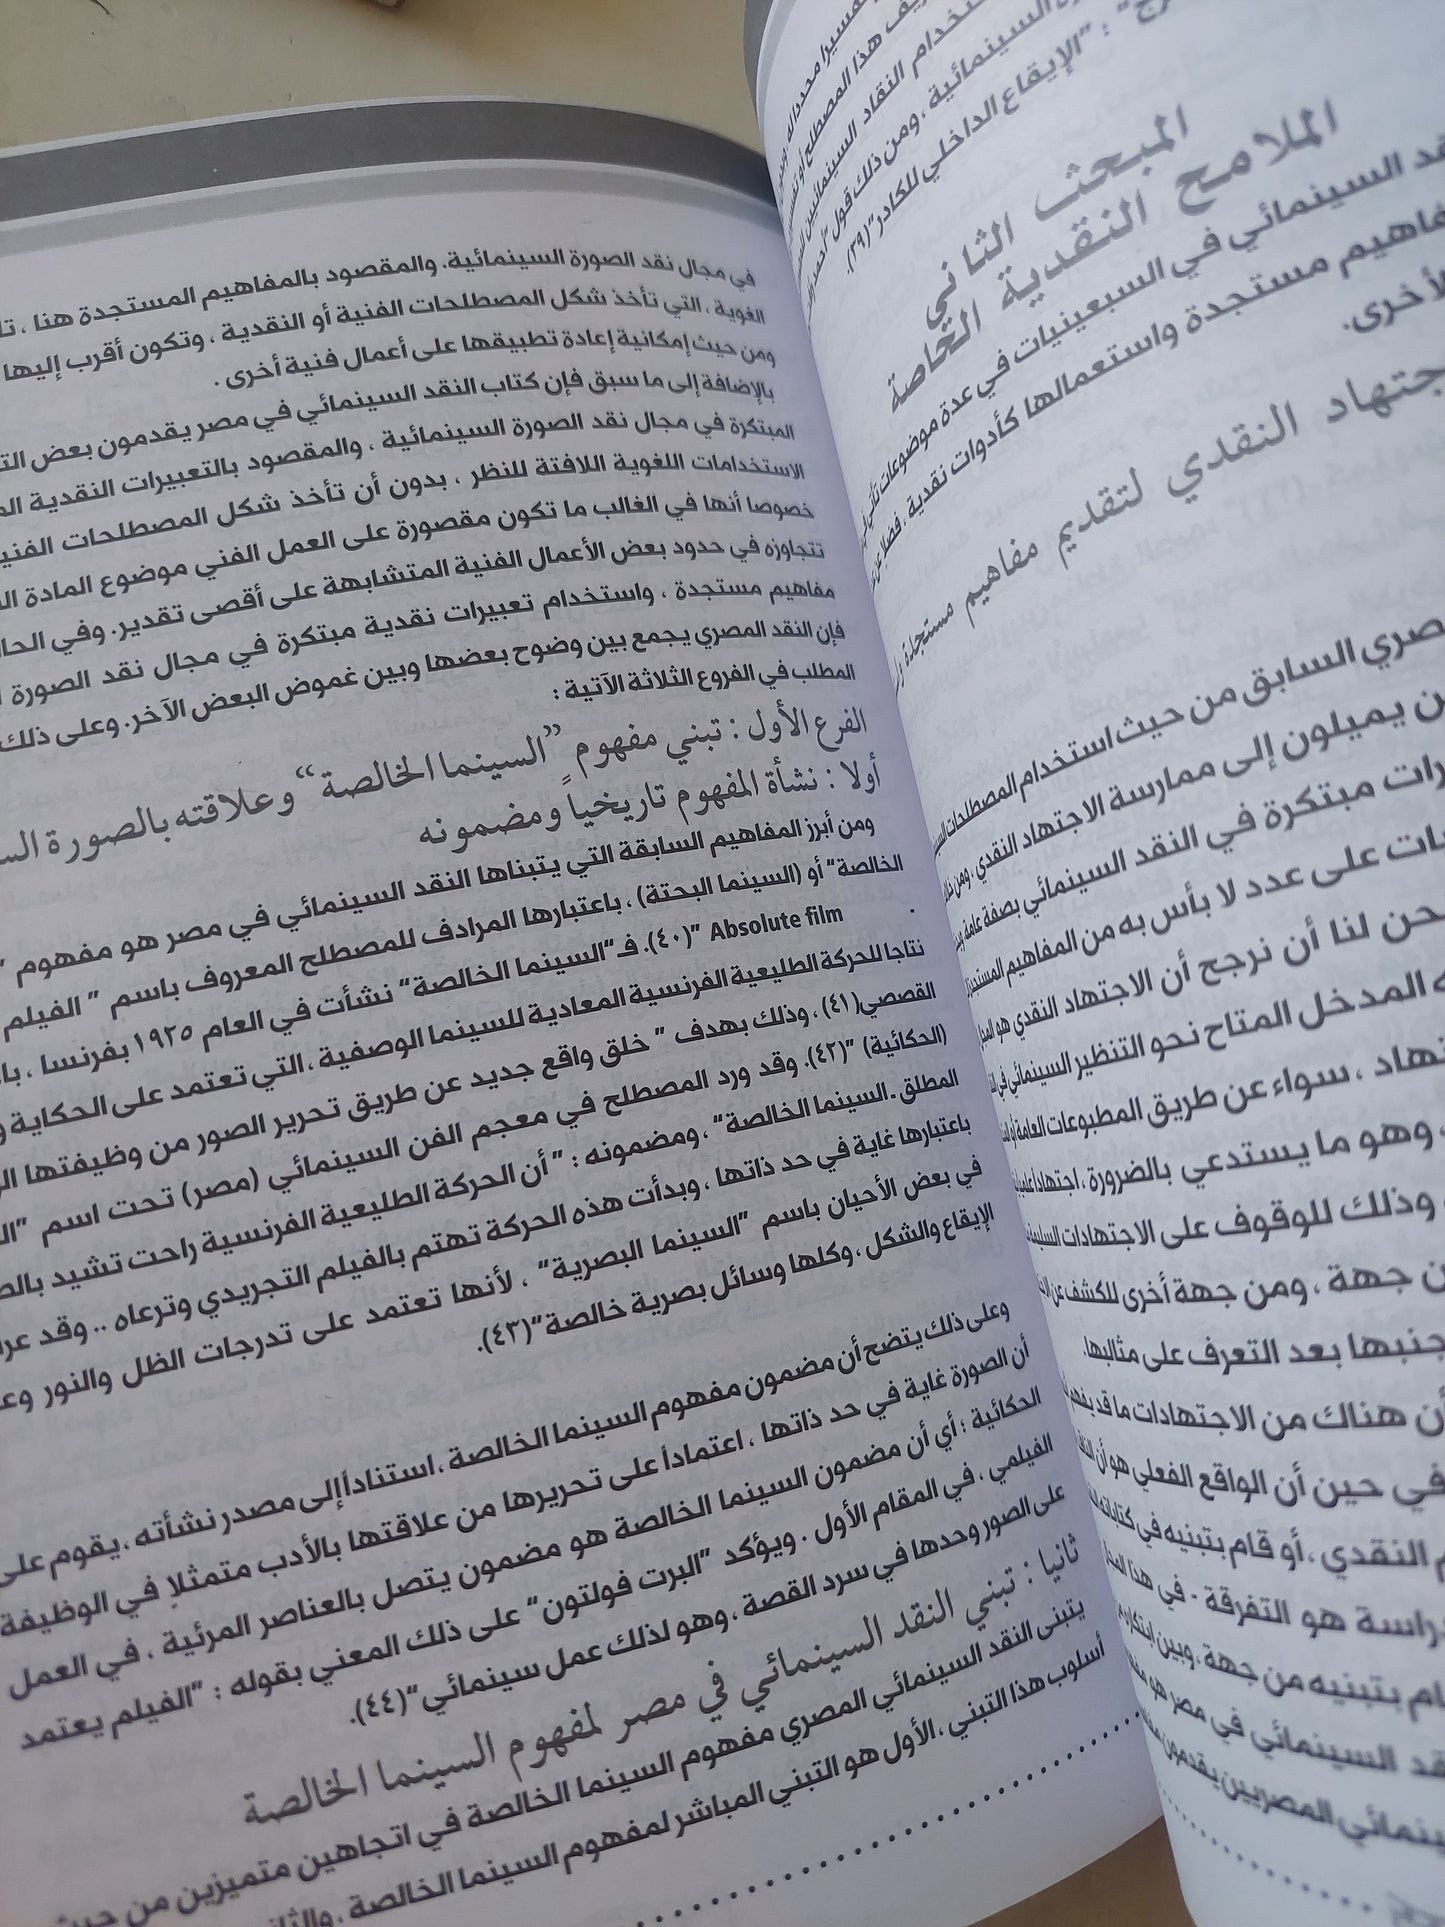 الإيقاع الداخلي للكادر"(٣٩).
المبحث الثاني
الملامح النقدية الخاصة
قد السينمائي في السبعينيات في عدة موضوعات
فاهيم مستجدة واستعمالها كأدوات نقدية ، فضلا عن
الأخرى.
جتهاد النقدي لتقديم مفاهيم مستجدة
صري السابق من حيث استخدام المصطلحات
ن يميلون إلى ممارسة الاجتهاد النقدي ، ومن
رات مبتكرة في النقد السينمائي بصفة عامة
ات على عدد لا بأس به من المفاهيم
حن لنا أن نرجح أن الاجتهاد النقدي هو
ه المدخل المتاح نحو التنظير السينمائي في
تهاد ، سواء عن طريق المطبوعات العامة
، وهو ما يستدعي بالضرورة ، اجتهادا
وذلك للوقوف على الاجتهادات
ن جهة ، ومن جهة أخرى للكشف عن
جنبها بعد التعرف على مثالبها.
ن هناك من الاجتهادات ما قد يفهم
في حين أن الواقع الفعلي هو أن
م النقدي ، أو قام بتبنيه في كتاباته
راسة هو التفرقة - في هذا
ام بتبنيه من جهة ، وبين
قد السينمائي في مصر هو
ينمائي المصريين يقدمون
في مجال نقد الصورة السينمائية. والمقصود بالمفاهيم المستجدة هنا ،
الغوية ، التي تأخذ شكل المصطلحات الفنية أو النقدية ، وتكون أقرب إليها
ومن حيث إمكانية إعادة تطبيقها على أعمال فنية أخرى .
بالإضافة إلى ما سبق فإن كتاب النقد السينمائي في مصر يقدمون بعض
المبتكرة في مجال نقد الصورة السينمائية ، والمقصود بالتعبيرات النقدية
الاستخدامات اللغوية اللافتة للنظر ، بدون أن تأخذ شكل المصطلحات
خصوصا أنها في الغالب ما تكون مقصورة على العمل الفني موضوع المادة
تتجاوزه في حدود بعض الأعمال الفنية المتشابهة على أقصى تقدير. وفي
مفاهيم مستجدة ، واستخدام تعبيرات نقدية مبتكرة في مجال نقد الصورة
فإن النقد المصري يجمع بين وضوح بعضها وبين غموض البعض الآخر. وعلى ذلك
المطلب في الفروع الثلاثة الآتية :
الفرع الأول : تبني مفهوم "السينما الخالصة" وعلاقته بالصورة
أولا : نشأة المفهوم تاريخياً ومضمونه
ومن أبرز المفاهيم السابقة التي يتبناها النقد السينمائي في مصر هو مفهوم "
الخالصة" أو (السينما البحتة) ، باعتبارها المرادف للمصطلح المعروف باسم " الفيلم
Absolute film "(٤٠). فـ"السينما الخالصة" نشأت في العام ١٩٢٥ بفرنسا ،
نتاجا للحركة الطليعية الفرنسية المعادية للسينما الوصفية ، التي تعتمد على الحكاية
القصصي(٤١) ، وذلك بهدف " خلق واقع جديد عن طريق تحرير الصور من وظيفتها
(الحكائية) "(٤٢). وقد ورد المصطلح في معجم الفن السينمائي (مصر) تحت اسم
المطلق ـ السينما الخالصة" ، ومضمونه : " أن الحركة الطليعية الفرنسية راحت تشيد
باعتبارها غاية في حد ذاتها ، وبدأت هذه الحركة تهتم بالفيلم التجريدي وترعاه .. وقد
في بعض الأحيان باسم "السينما البصرية" ، لأنها تعتمد على تدرجات الظل والنور
الإيقاع والشكل ، وكلها وسائل بصرية خالصة"(٤٣).
وعلى ذلك يتضح أن مضمون مفهوم السينما الخالصة ، استناداً إلى مصدر نشأته ، يقوم على
أن الصورة غاية في حد ذاتها ، اعتماداً على تحريرها من علاقتها بالأدب متمثلاِ في الوظيفة
الحكائية ؛ أي أن مضمون السينما الخالصة هو مضمون يتصل بالعناصر المرئية ، في العمل
الفيلمي ، في المقام الأول . ويؤكد "البرت فولتون" على ذلك المعني بقوله : "الفيلم يعتمد
على الصور وحدها في سرد القصة ، وهو لذلك عمل سينمائي"(٤٤).
ثانيا : تبني النقد السينمائي في مصر لمفهوم السينما الخالصة
يتبنى النقد السينمائي المصري مفهوم السينما الخالصة في اتجاهين متميزين من حيث
أسلوب هذا التبني ، الأول هو التبني المباشر لمفهوم السينما الخالصة ،